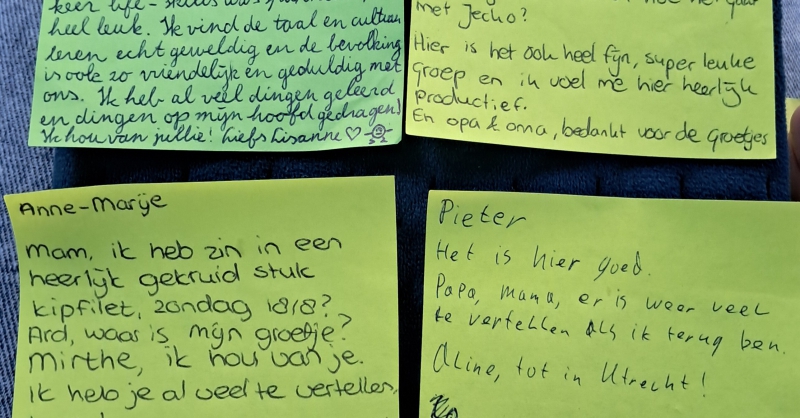 heel leuk. Ik vind de taal en cultuur
leren echt geweldig en de bevolking
is ook zo vriendelijk en geduldig met
ons. Ik heb al veel dingen geleerd
en dingen op mijn hoofd gedragen!
Ik hou van jullie! Liefs Lisanne ♡
met Jecho?
Hier is het ook heel fijn, super leuke
groep en ik voel me hier heerlijk
productief.
En opa & oma, bedankt voor de groetjes
Anne-Marije
Mam, ik heb zin in een
heerlijk gekruid stuk
kipfilet, zondag 18/8?
Ard, waar is mijn groetje?
Mirthe, ik hou van je.
Ik heb je al veel te vertellen,
Pieter
Het is hier goed.
Papa, mama, er is weer veel
te vertellen als ik terug ben.
Aline, tot in Utrecht!